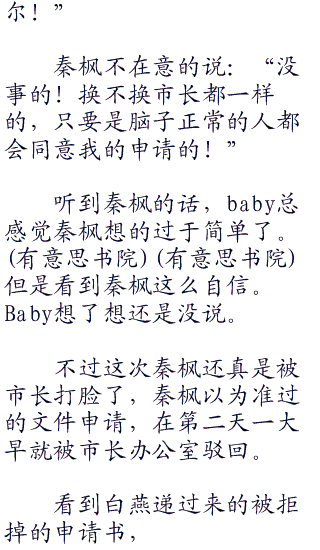 尔！”
秦枫不在意的说：“没
事的！换不换市长都一样
的，只要是脑子正常的人都
会同意我的申请的！”
听到秦枫的话，baby总
感觉秦枫想的过于简单了。
(有意思书院)(有意思书院)
但是看到秦枫这么自信。
Baby想了想还是没说。
不过这次秦枫还真是被
市长打脸了，秦枫以为准过
的文件申请，在第二天一大
早就被市长办公室驳回。
看到白燕递过来的被拒
掉的申请书，